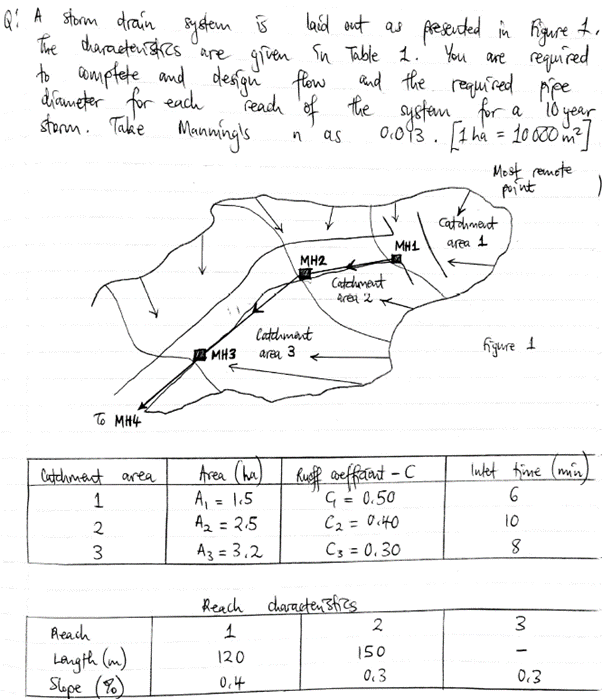 Q: A storm drain system is laid out as presented in Figure 1.
The characteristics are given in Table 1. You are required
to complete and design flow and the required pipe
diameter for each reach of the system for a 10 year
storm. Take Manning's n as 0.013. [1 ha = 10000 m²]
Most remote
point
)
Catchment
area 1
MH1
MH2
Catchment
area 2
Catchment
area 3
MH3
Figure 1
To MH4
Catchment area | Area (ha) | Runoff coefficient - C | Inlet time (min)
1 | A₁ = 1.5 | C₁ = 0.50 | 6
2 | A₂ = 2.5 | C₂ = 0.40 | 10
3 | A₃ = 3.2 | C₃ = 0.30 | 8
Reach characteristics
Reach | 1 | 2 | 3
Length (m) | 120 | 150 | -
Slope (%) | 0.4 | 0.3 | 0.3